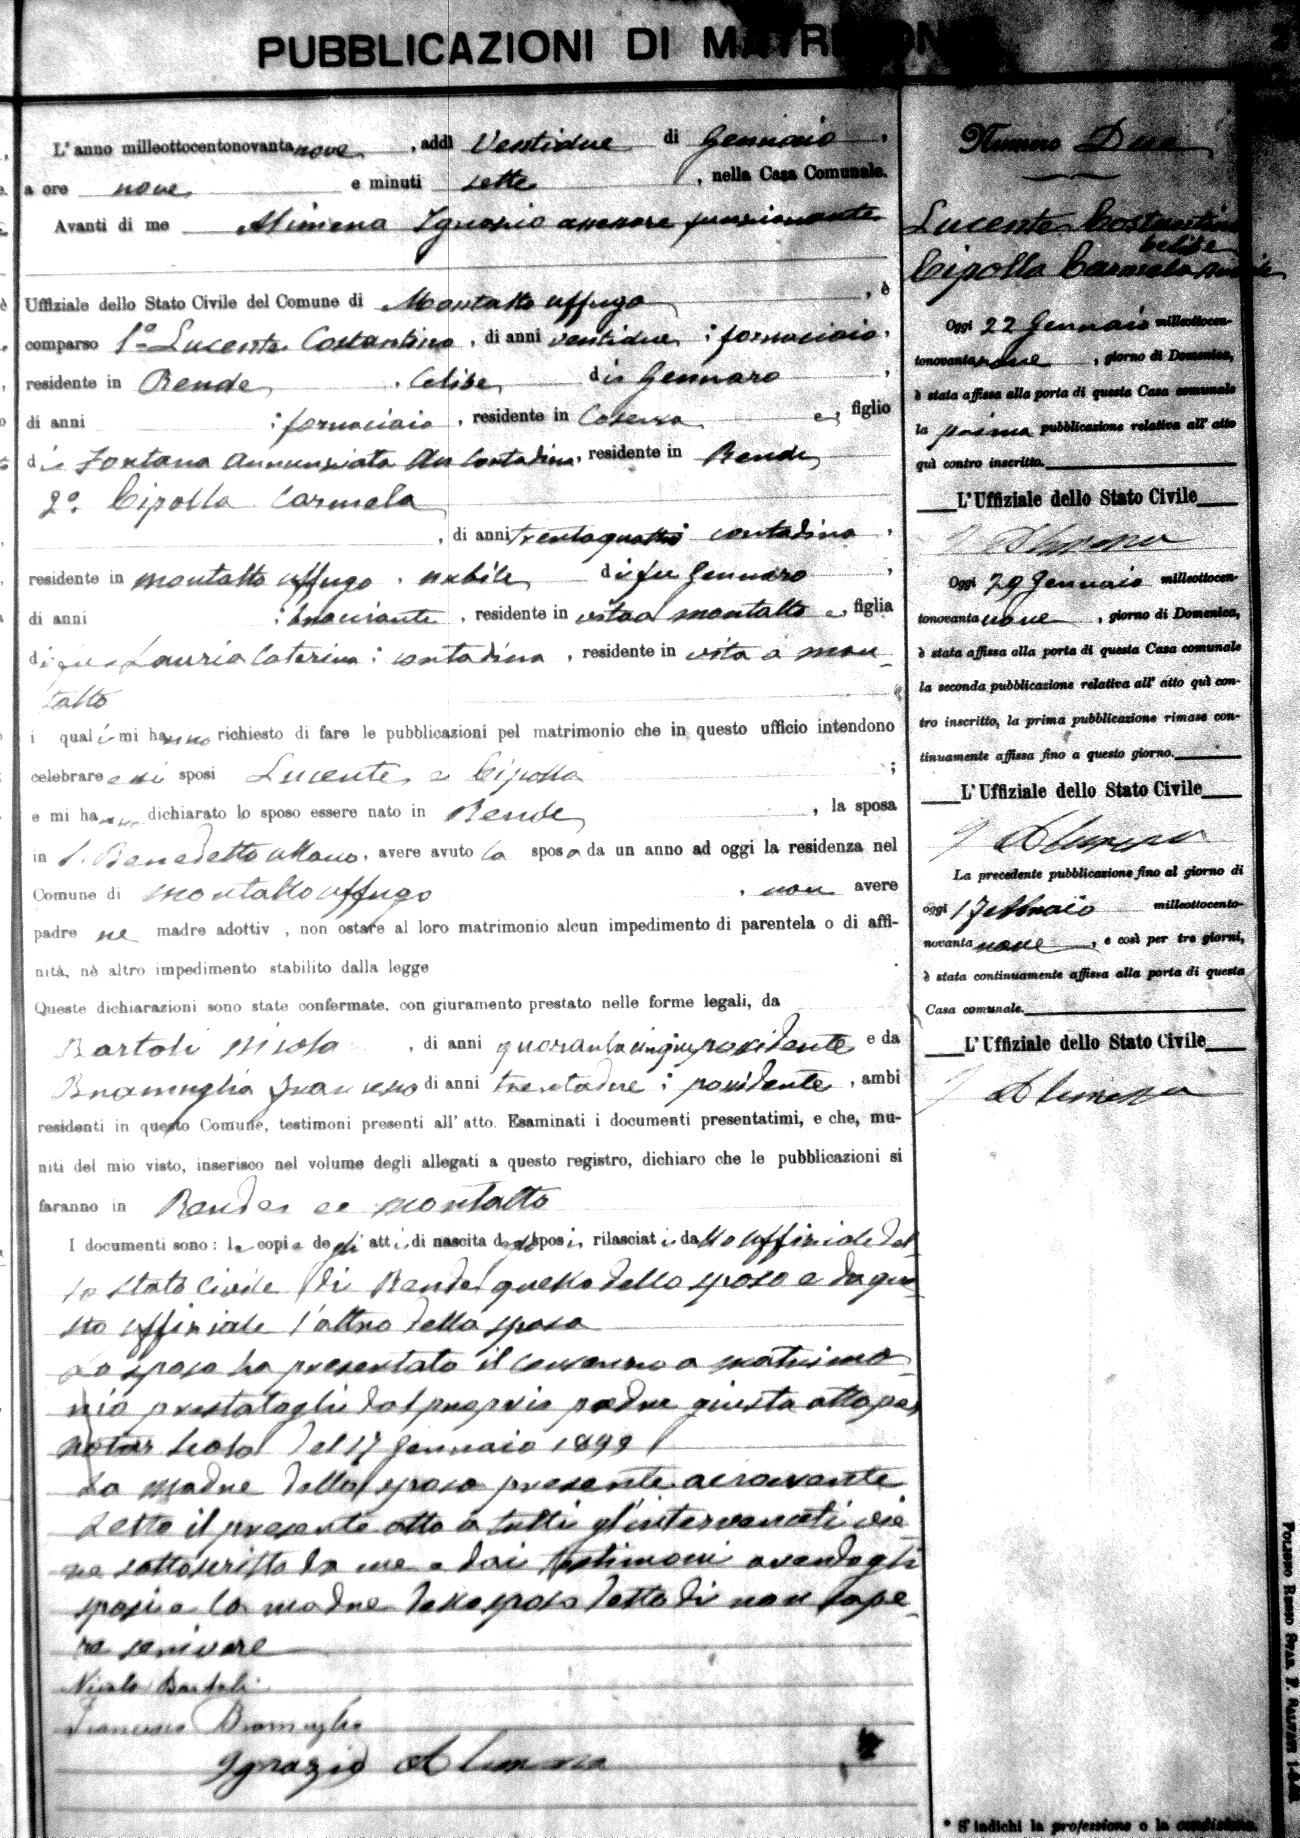 PUBBLICAZIONI DI
L'anno milleottocentonovantanove, addì Ventidue di Gennaio,
a ore nove e minuti sette, nella Casa Comunale.
Avanti di me Alimena Ignazio assessore funzionante
Uffiziale dello Stato Civile del Comune di Montalto Uffugo, è
comparso 1º Lucente Costantino, di anni ventidue; fornaciaio,
residente in Rende, Celibe, di Gennaro,
di anni ; fornaciaio, residente in Cosenza e, figlio
di Fontana Annunziata contadina, residente in Rende
2º. Cipolla Carmela
, di anni trentaquattro contadina,
residente in Montalto Uffugo, nubile, di fu Gennaro,
di anni ; bracciante, residente in vita a Montalto e, figlia
di fu Lauria Caterina; contadina, residente in vita a Mon-
talto
i quali mi hanno richiesto di fare le pubblicazioni pel matrimonio che in questo ufficio intendono
celebrare essi sposi Lucente e Cipolla;
e mi hanno dichiarato lo sposo essere nato in Rende, la sposa
in S. Benedetto Ullano, avere avuto la sposa da un anno ad oggi la residenza nel
Comune di Montalto Uffugo, non avere
padre ne madre adottiv , non ostare al loro matrimonio alcun impedimento di parentela o di affi-
nità, nè altro impedimento stabilito dalla legge.
Queste dichiarazioni sono state confermate, con giuramento prestato nelle forme legali, da
Bartoli Nicola, di anni quarantacinque possidente e da
Bramuglia Francesco di anni trentadue; possidente, ambi
residenti in questo Comune, testimoni presenti all'atto. Esaminati i documenti presentatimi, e che, mu-
niti del mio visto, inserisco nel volume degli allegati a questo registro, dichiaro che le pubblicazioni si
faranno in Rende e Montalto
I documenti sono: le copie degli atti di nascita degli sposi rilasciati dallo Uffiziale del
lo Stato Civile di Rende quello dello sposo e da que
sto Uffiziale l'altro della sposa
Lo sposo ha presentato il consenso a matrimo
nio prestatogli dal proprio padre giusta atto per
notar Scola del 17 Gennaio 1899
La madre dello sposo presente acconsente
Letto il presente atto a tutti gl'intervenuti vie
ne sottoscritto da me e dai testimoni avendo gli
sposi e la madre dello sposo detto di non sape-
re scrivere
Nicola Bartoli
Francesco Bramuglia
Ignazio Alimena
Numero Due
Lucente Costantino
celibe
Cipolla Carmela nubile
Oggi 22 Gennaio milleottocen-
tonovantanove, giorno di Domenica,
è stata affissa alla porta di questa Casa comunale
la prima pubblicazione relativa all'atto
quì contro inscritto.
L'Uffiziale dello Stato Civile
I Alimena
Oggi 29 Gennaio milleottocen-
tonovantanove, giorno di Domenica,
è stata affissa alla porta di questa Casa comunale
la seconda pubblicazione relativa all'atto quì con-
tro inscritto, la prima pubblicazione rimase con-
tinuamente affissa fino a questo giorno.
L'Uffiziale dello Stato Civile
I Alimena
La precedente pubblicazione fino al giorno di
oggi 1 Febbraio milleottocento-
novantanove, e così per tre giorni,
è stata continuamente affissa alla porta di questa
Casa comunale.
L'Uffiziale dello Stato Civile
I Alimena
* S'indichi la professione o la condizione.